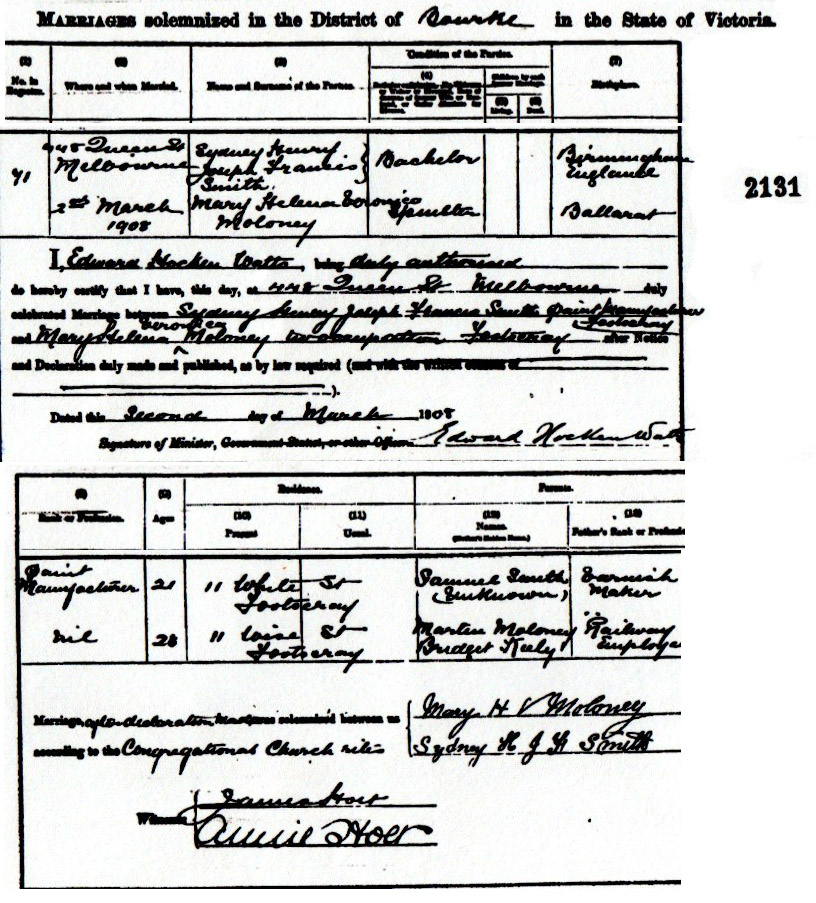 MARRIAGES solemnized in the District of Bourke in the State of Victoria.
Condition of the Parties.
(1) (2) (3) (4) (5) (6) (7)
No. in Register. Where and when Married. Name and Surname of the Parties. Living. Dead. Birthplace.
71 448 Queen St Melbourne Sydney Henry Joseph Francis Smith Bachelor Birmingham England
2131
2nd March 1908 Mary Helena Veronica Moloney Spinster Ballarat
I, Edward Hocken Watts, being duly authorised
do hereby certify that I have, this day, at 448 Queen St Melbourne duly
celebrated Marriage between Sydney Henry Joseph Francis Smith Paint Manufacturer Footscray
and Mary Helena Veronica Moloney no occupation Footscray after Notice
and Declaration duly made and published, as by law required (and with the written consent of
).
Dated this Second day of March 1908
Signature of Minister, Government Statist, or other Officer. Edward Hocken Watts
(8) (9) Residence. Parents.
Rank or Profession. Ages (10) Present (11) Usual. (12) Names. (Mother's Maiden Name.) (13) Father's Rank or Profession
Paint Manufacturer 21 11 White St Footscray Samuel Smith (Unknown) Varnish Maker
Nil 28 11 St Footscray Martin Moloney Bridget Kiely Railway Employe
Marriage, after declaration made was solemnized between us Mary H V Moloney
according to the Congregational Church rites Sydney H J F Smith
Witnesses James Holt
Annie Holt